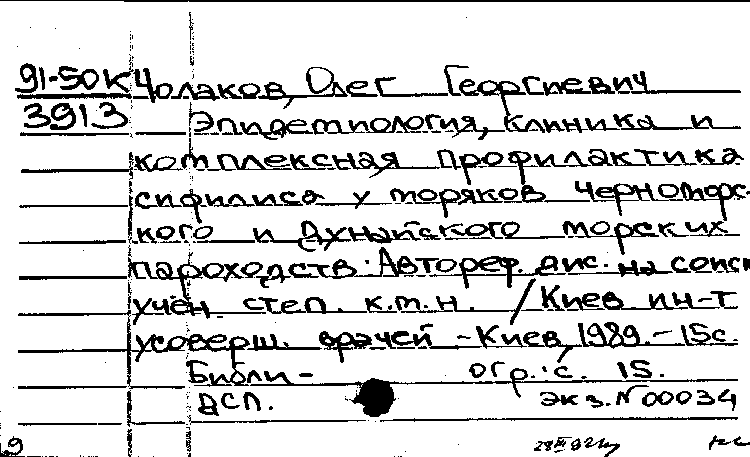 91-50К Чолаков, Олег Георгиевич
3913 Эпидемиология, клиника и
комплексная профилактика
сифилиса у моряков Черноморс-
кого и Дунайского морских
пароходств: Автореф. дис. на соиск
учен. степ. к.м.н. / Киев ин-т
усоверш. врачей - Киев, 1989. - 15с.
Библи- огр.: с. 15.
ДСП. экз. № 00034
9